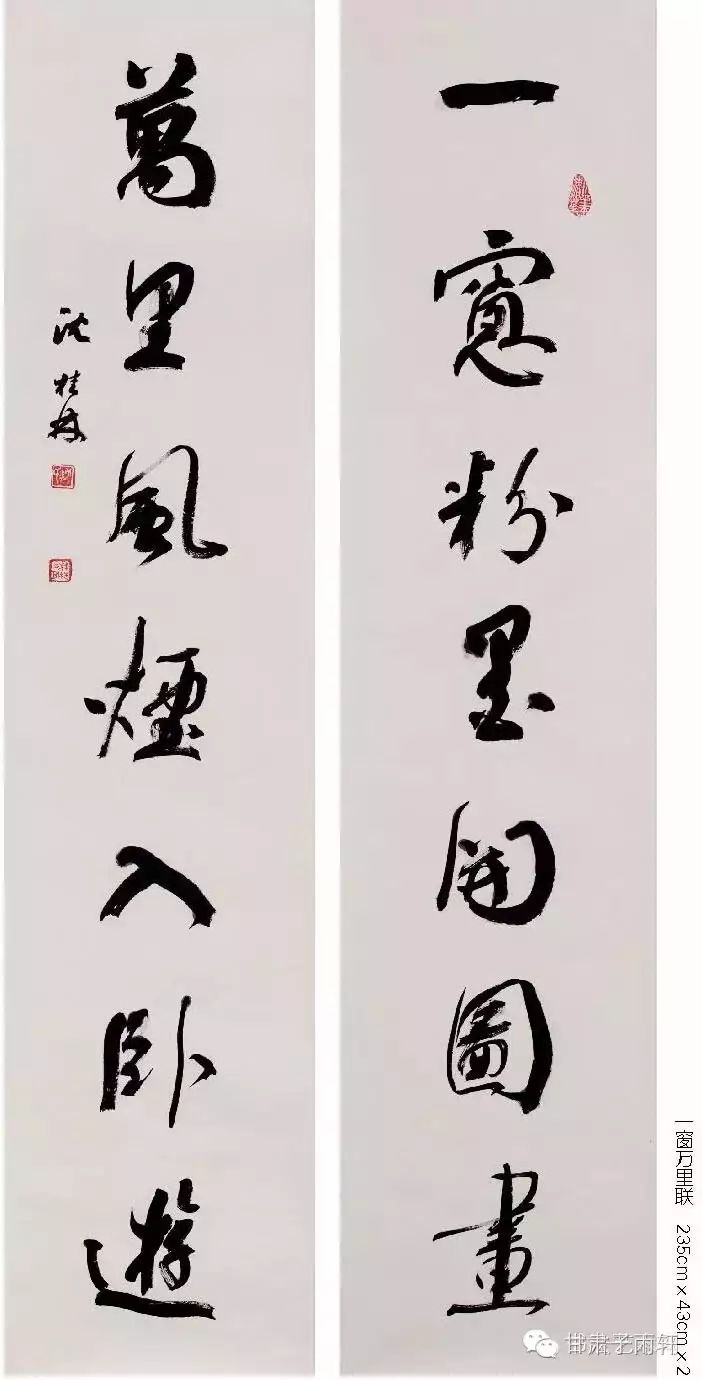 一窻粉墨開圖畫
萬里風煙入卧遊
沈桂
一窗万里联 235cm x 43cm x 2
甘肃 雨轩